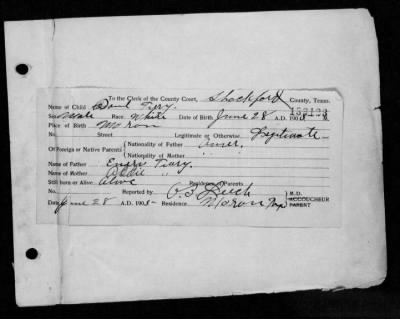 To the Clerk of the County Court, Shackelford County, Texas.
Name of Child
Sex Male Race White Date of Birth June 28 A.D. 190
Place of Birth Moran
No. Street: Legitimate or Otherwise, Legitimate
Of Foreign or Native Parents { Nationality of Father Amer.
Nationality of Mother " "
Name of Father
Name of Mother Addie " "
Still born or Alive Alive Residence of Parents
No. Reported by M.D.
ACCOUCHEUR
PARENT
Date June 28 A.D. 190 Residence Moran